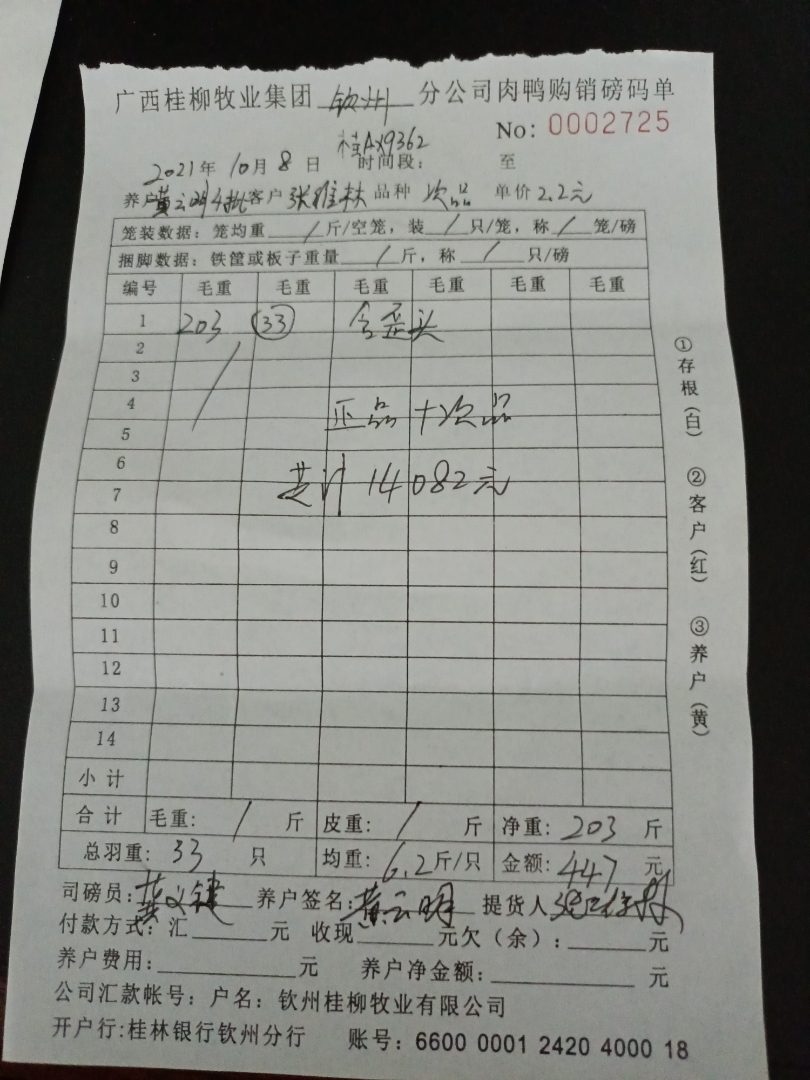 广西桂柳牧业集团 钦州 分公司肉鸭购销磅码单
No: 0002725
桂AX9362
2021年 10月 8日 时间段: 至
养户 黄云明4批 客户 张雅林 品种 次品 单价 2.2元
笼装数据: 笼均重 / 斤/空笼, 装 / 只/笼, 称 / 笼/磅
捆脚数据: 铁筐或板子重量 / 斤, 称 / 只/磅
编号 毛重 毛重 毛重 毛重 毛重 毛重
1 203 33 含歪头
2
3
4 正品+次品
5
6
7 共计14082元
8
9
10
11
12
13
14
小计
合计 毛重: / 斤 皮重: / 斤 净重: 203 斤
总羽重: 33 只 均重: 6.2斤/只 金额: 447 元
司磅员: 养户签名: 黄云明 提货人
付款方式: 汇 元 收现 元欠(余): 元
养户费用: 元 养户净金额: 元
公司汇款帐号: 户名: 钦州桂柳牧业有限公司
开户行:桂林银行钦州分行 账号: 6600 0001 2420 4000 18
①存根(白) ②客户(红) ③养户(黄)